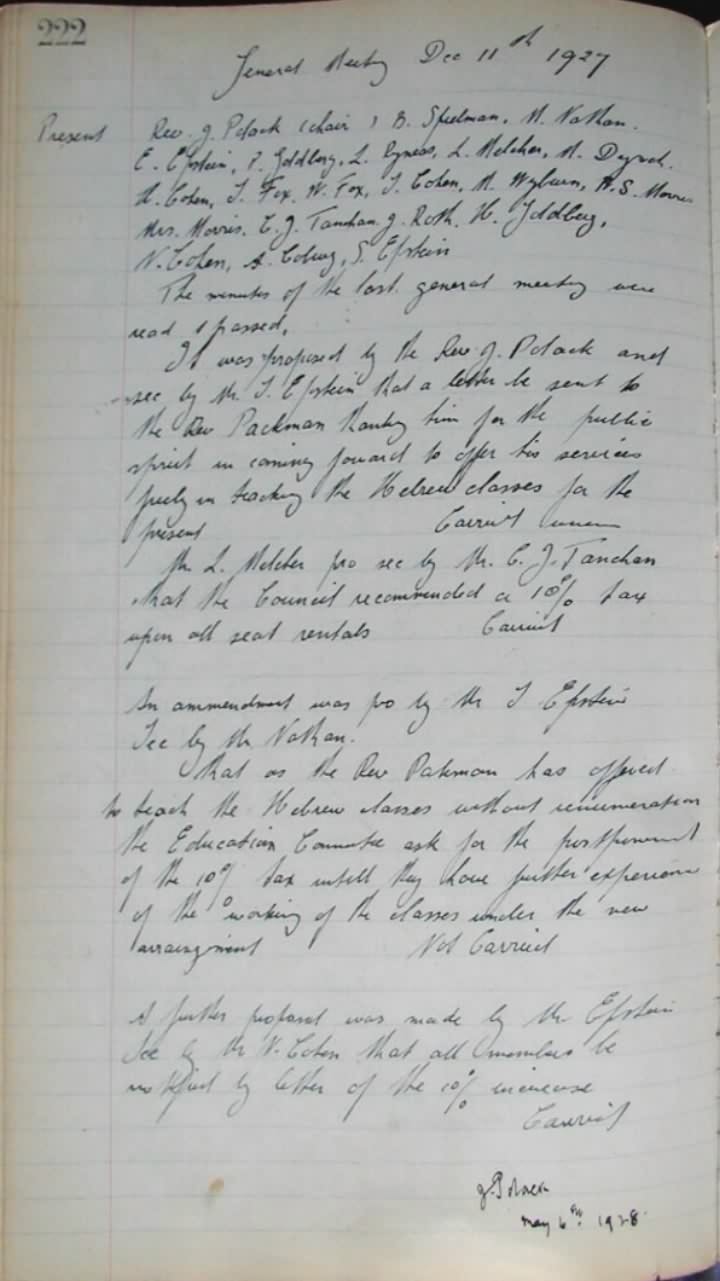 222
General Meeting Dec 11th 1927
Present Rev. J. Polack (chair) B. Spielman, M. Nathan.
E. Epstein, P. Goldberg, L. Dyness, L. Melcher, M.
A. Cohen, I. Fox, W. Fox, I. Cohen, M. Wyburn, H. S. Morris
Mrs. Morris, C. J. Tanchan, J. Roth, H. Goldberg,
N. Cohen, A. Coburg, S. Epstein
The minutes of the last general meeting were
read & passed.
It was proposed by the Rev J. Polack and
sec by Mr. I. Epstein that a letter be sent to
the Rev Packman thanking him for the public
spirit in coming forward to offer his services
freely in teaching the Hebrew classes for the
present Carried unan
Mr L. Melcher pro sec by Mr. C. J. Tanchan
that the Council recommended a 10% tax
upon all seat rentals Carried
An ammendment was pro by Mr I Epstein
Sec by Mr Nathan.
That as the Rev Pakman has offered
to teach the Hebrew classes without renumeration
the Education Committe ask for the postponement
of the 10% tax untill they have further experience
of the working of the classes under the new
arraingment Not Carried
A further proposal was made by Mr Epstein
Sec by Mr N. Cohen that all members be
notified by letter of the 10% increase
Carried
J. Polack
May 6th 1928